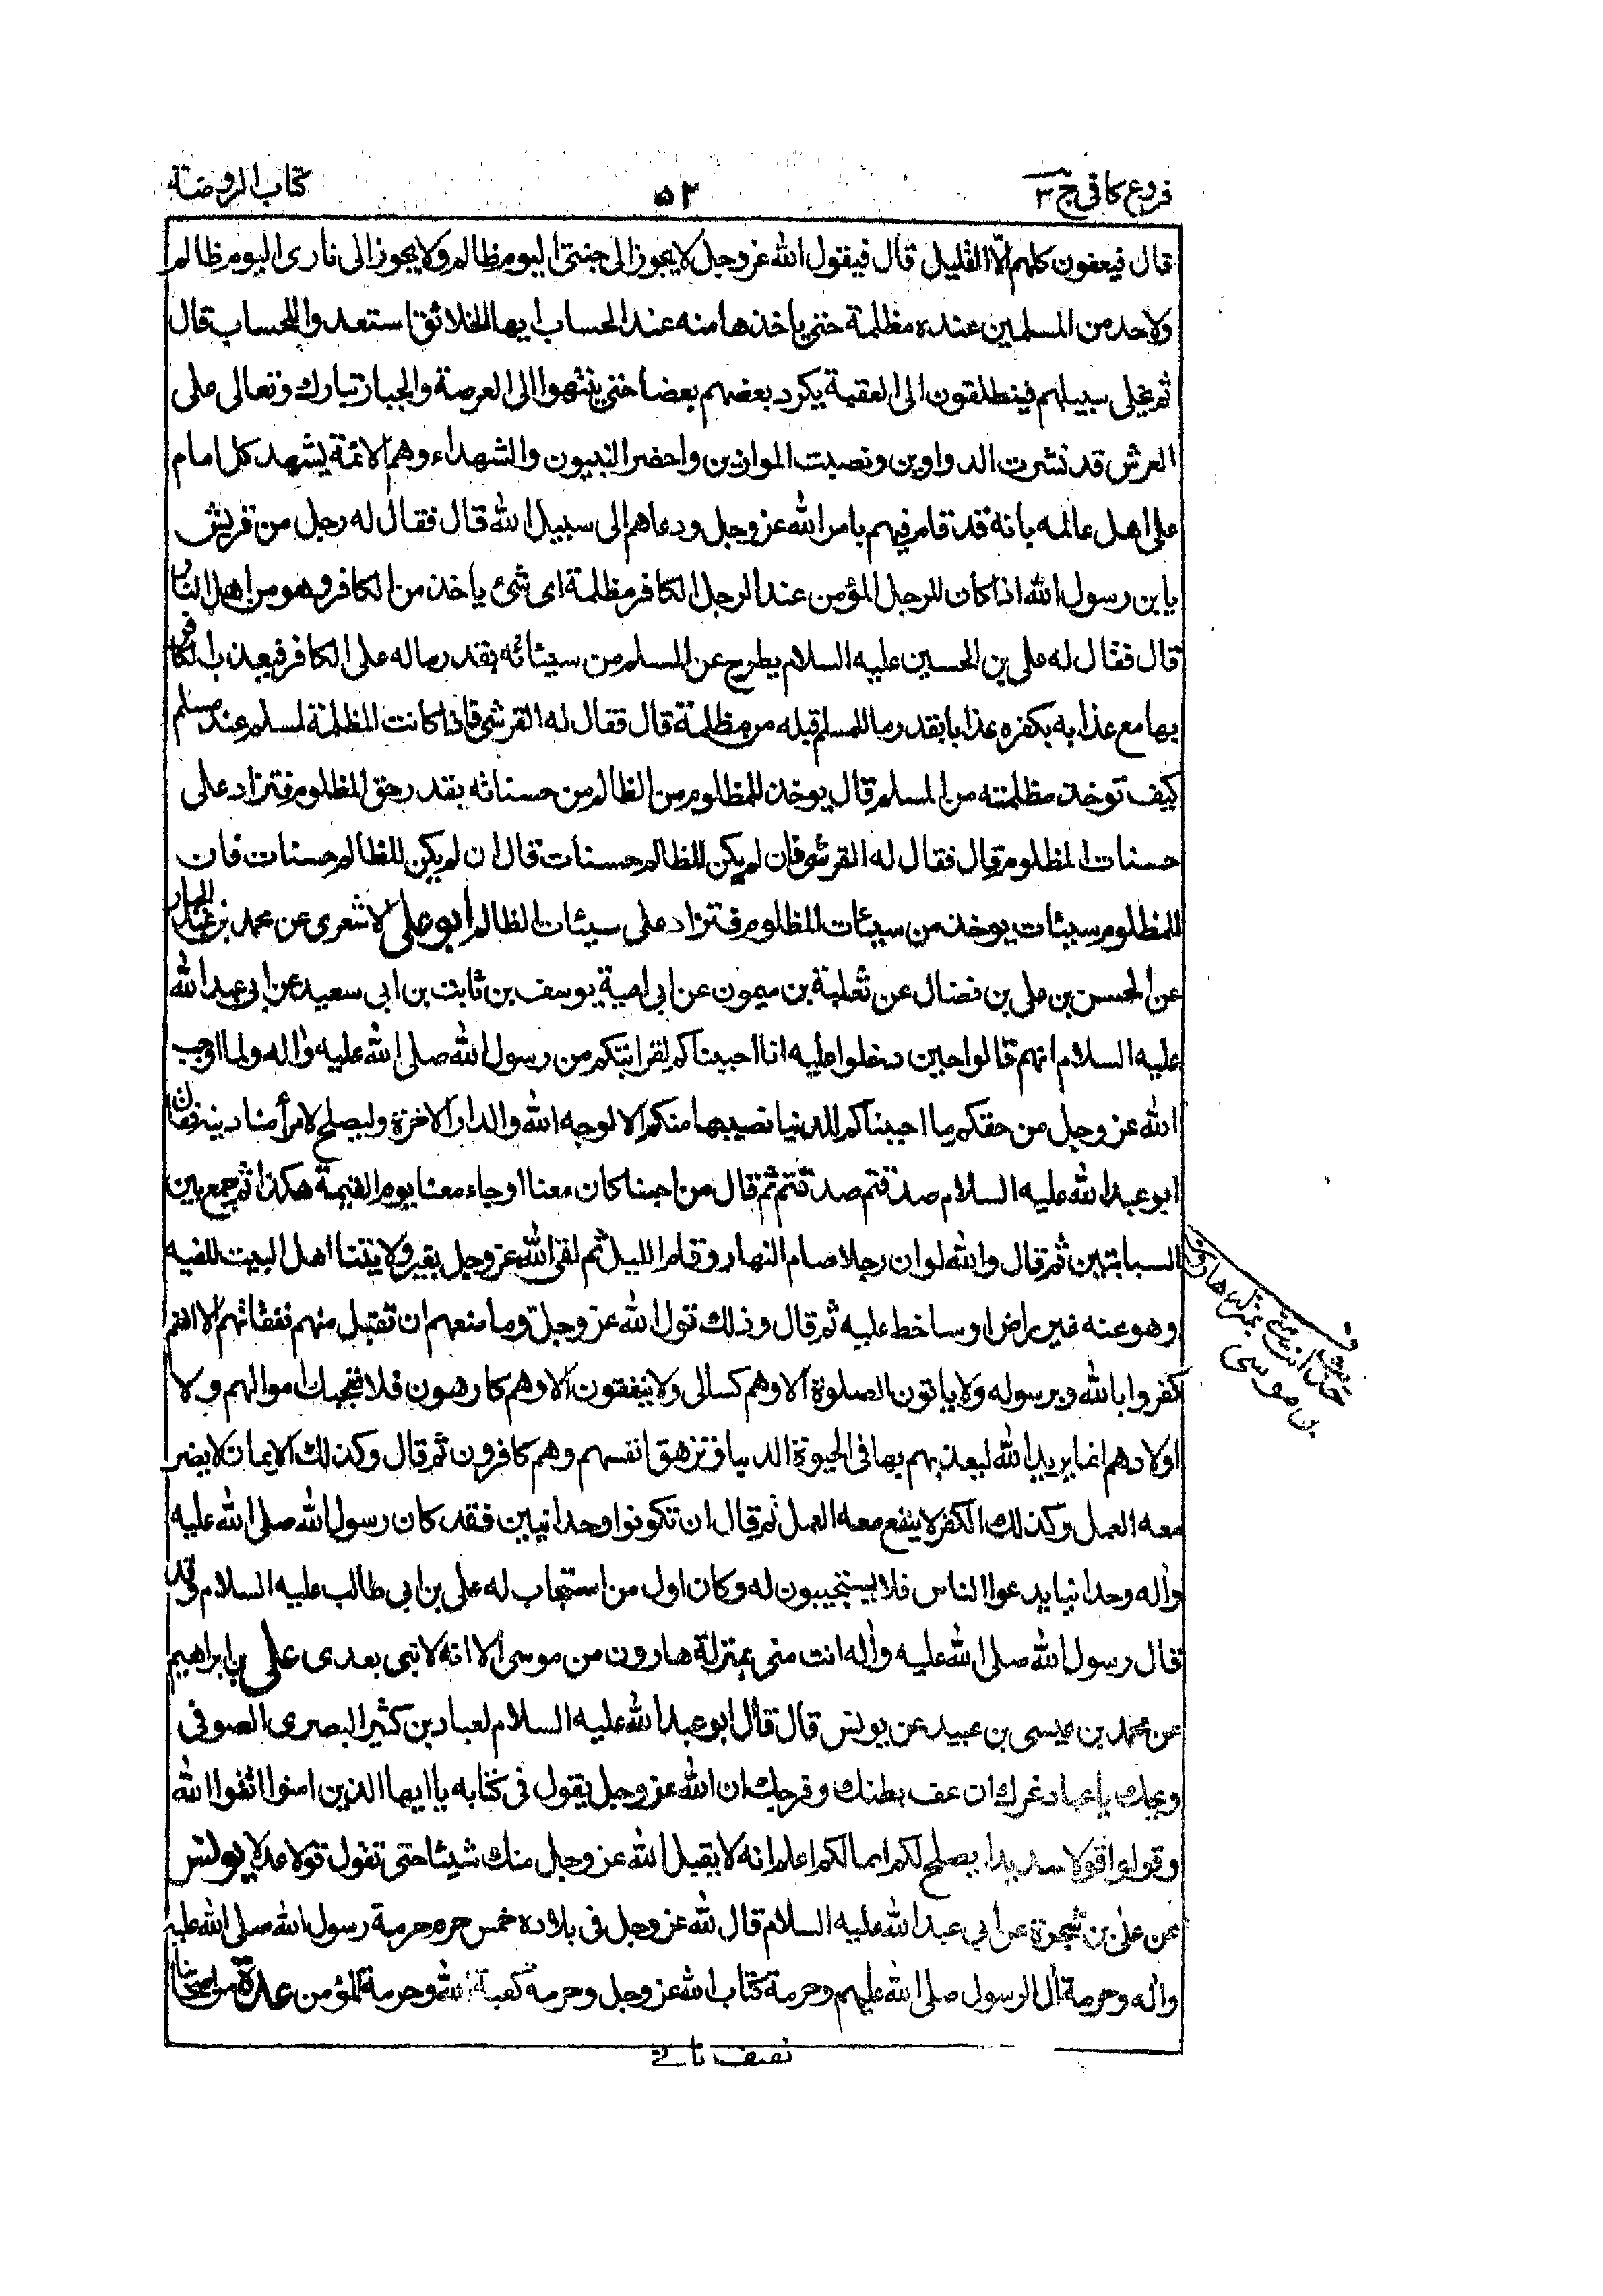 فروع كافي ج ٣
٥٢
كتاب الروضة
قال فيعفون كلهم الّا القليل قال فيقول الله عز وجل لا يجوز الى جنتى اليوم ظالم ولا يجوز الى نارى اليوم ظالم
ولاحد من المسلمين عنده مظلمة حتى ياخذها منه عند الحساب ايها الخلائق استعدوا للحساب قال
ثم يخلى سبيلهم فينطلقون الى العقبة يكرد بعضهم بعضا حتى ينتهوا الى العرصة والجبار تبارك وتعالى على
العرش قد نشرت الدواوين ونصبت الموازين واحضر النبيون والشهداء وهم الائمة يشهد كل امام
على اهل عالمه بانه قد قام فيهم بامر الله عز وجل ودعاهم الى سبيل الله قال فقال له رجل من قريش
يا بن رسول الله اذا كان للرجل المؤمن عند الرجل الكافر مظلمة اى شئ ياخذ من الكافر وهو من اهل النار
قال فقال له على بن الحسين عليه السلام يطرح عن المسلم من سيئاته بقدر ما له على الكافر فيعذب الكافر
بها مع عذابه بكفره عذابا بقدر ما للمسلم قبله من مظلمة قال فقال له القرشى فاذا كانت المظلمة لمسلم عند مسلم
كيف توخذ مظلمته من المسلم قال يوخذ للمظلوم من الظالم من حسناته بقدر حق المظلوم فتزاد على
حسنات المظلوم قال فقال له القرشى فان لم يكن للظالم حسنات قال ان لم يكن للظالم حسنات فان
للمظلوم سيئات يوخذ من سيئات المظلوم فتزاد على سيئات الظالم ابو على الاشعرى عن محمد بن عبد الجبار
عن الحسن بن على بن فضال عن ثعلبة بن ميمون عن ابى امية يوسف بن ثابت بن ابى سعيد عن ابى عبد الله
عليه السلام انهم قالوا حين دخلوا عليه انا احببناكم لقرابتكم من رسول الله صلى الله عليه واله ولما اوجب
الله عز وجل من حقكم ما احببناكم للدنيا نصيبها منكم الا لوجه الله والدار الاخرة وليصلح لامرأ منا دينه فقال
ابو عبد الله عليه السلام صدقتم صدقتم ثم قال من احبنا كان معنا او جاء معنا يوم القيمة هكذا ثم جمع بين
السبابتين ثم قال والله لو ان رجلا صام النهار وقام الليل ثم لقى الله عز وجل بغير ولايتنا اهل البيت للقيه
وهو عنه غير راض او ساخط عليه ثم قال وذلك قول الله عز وجلّ وما منعهم ان تقبل منهم نفقاتهم الا انهم
كفروا بالله وبرسوله ولا ياتون الصلوة الا وهم كسالى ولا ينفقون الا وهم كارهون فلا تعجبك اموالهم ولا
اولادهم انما يريد الله ليعذبهم بها فى الحيوة الدنيا وتزهق انفسهم وهم كافرون ثم قال وكذلك الايمان لا يضر
معه العمل وكذلك الكفر لا ينفع معه العمل ثم قال ان تكونوا وحدانيين فقد كان رسول الله صلى الله عليه
واله وحدانيا يدعوا الناس فلا يستجيبون له وكان اول من استجاب له على بن ابى طالب عليه السلام وقد
قال رسول الله صلى الله عليه واله انت منى بمنزلة هارون من موسى الا انه لا نبى بعدى على بن ابراهيم
عن محمد بن عيسى بن عبيد عن يونس قال قال ابو عبد الله عليه السلام لعباد بن كثير البصرى الصوفى
ويحك يا عباد غرك ان عف بطنك وفرجك ان الله عز وجل يقول فى كتابه يا ايها الذين امنوا اتقوا الله
وقولوا قولا سديدا يصلح لكم اعمالكم اعلم انه لا يقبل الله عز وجل منك شيئا حتى تقول قولا عدلا يونس
عن على بن شجرة عن ابى عبد الله عليه السلام قال لله عز وجل فى بلاده خمس حرم حرمة رسول الله صلى الله عليه
واله وحرمة ال الرسول صلى الله عليهم وحرمة كتاب الله عز وجل وحرمة كعبة الله وحرمة المؤمن عدة من اصحابنا
حديث انت منى بمنزلة هارون
من موسى